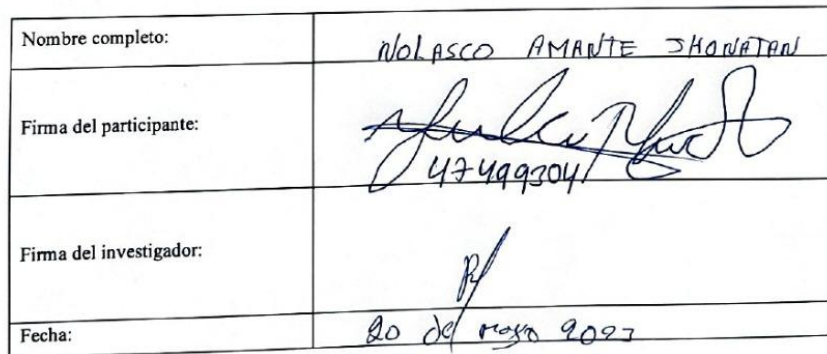 Nombre completo: NOLASCO AMANTE JHONATAN
Firma del participante:
47499304
Firma del investigador:
Fecha: 20 de mayo 2023